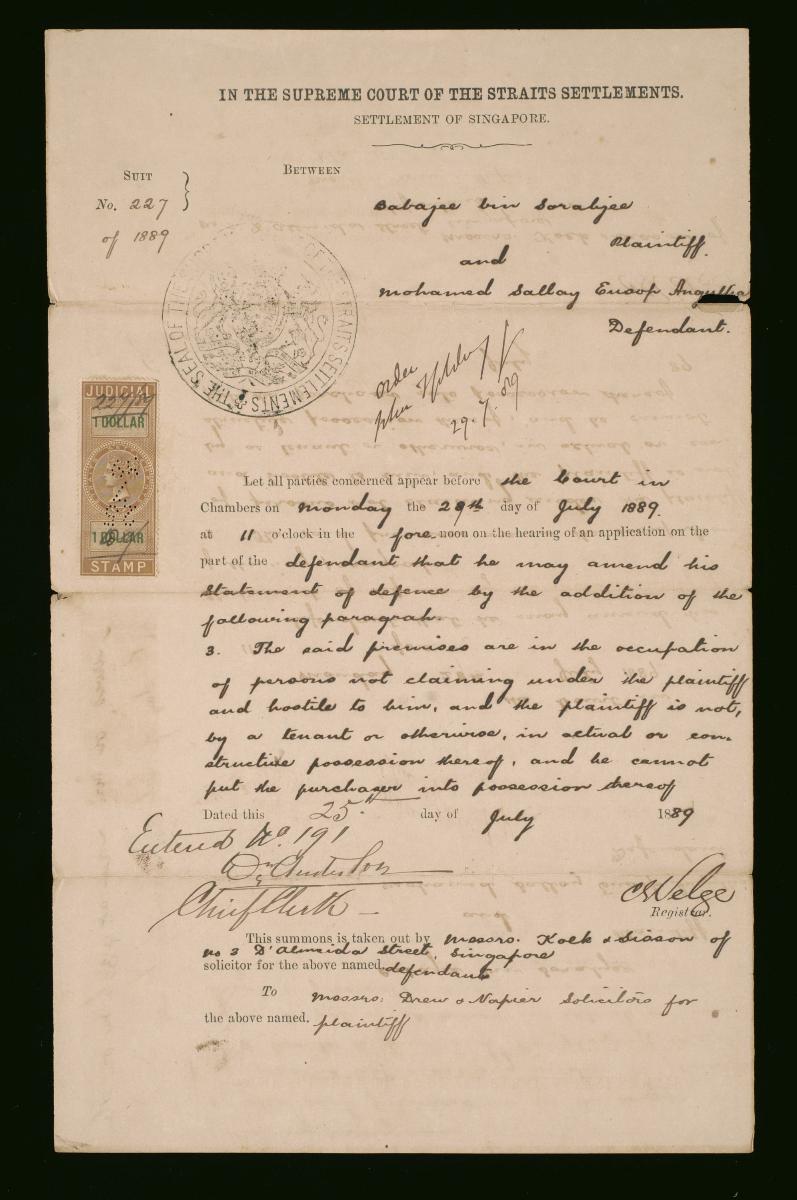 IN THE SUPREME COURT OF THE STRAITS SETTLEMENTS.
SETTLEMENT OF SINGAPORE.
SUIT
BETWEEN
No. 227
of 1889
Babajee bin Sorabjee
Plaintiff.
and
Mohamed Sallay Eusoof Angullia
Defendant.
THE SEAL OF THE SUPREME COURT OF THE STRAITS SETTLEMENTS
order
29.7.89
JUDICIAL
227/89
1 DOLLAR
1 DOLLAR
STAMP
Let all parties concerned appear before the Court in
Chambers on Monday the 29th day of July 1889.
at 11 o'clock in the fore noon on the hearing of an application on the
part of the defendant that he may amend his
Statement of defence by the addition of the
following paragrah.
3. The said premises are in the occupation
of persons not claiming under the plaintiff
and hostile to him, and the plaintiff is not,
by a tenant or otherwise, in actual or con-
structive possession thereof, and he cannot
put the purchaser into possession thereof
Dated this 25th day of July 1889
Entered No. 191
Chief Clerk
CE Velge
Registrar.
This summons is taken out by Messrs. Koek & Sisson of
No 3 D'Almeida Street, Singapore
solicitor for the above named defendant
To Messrs: Drew & Napier Solicitors for
the above named. plaintiff